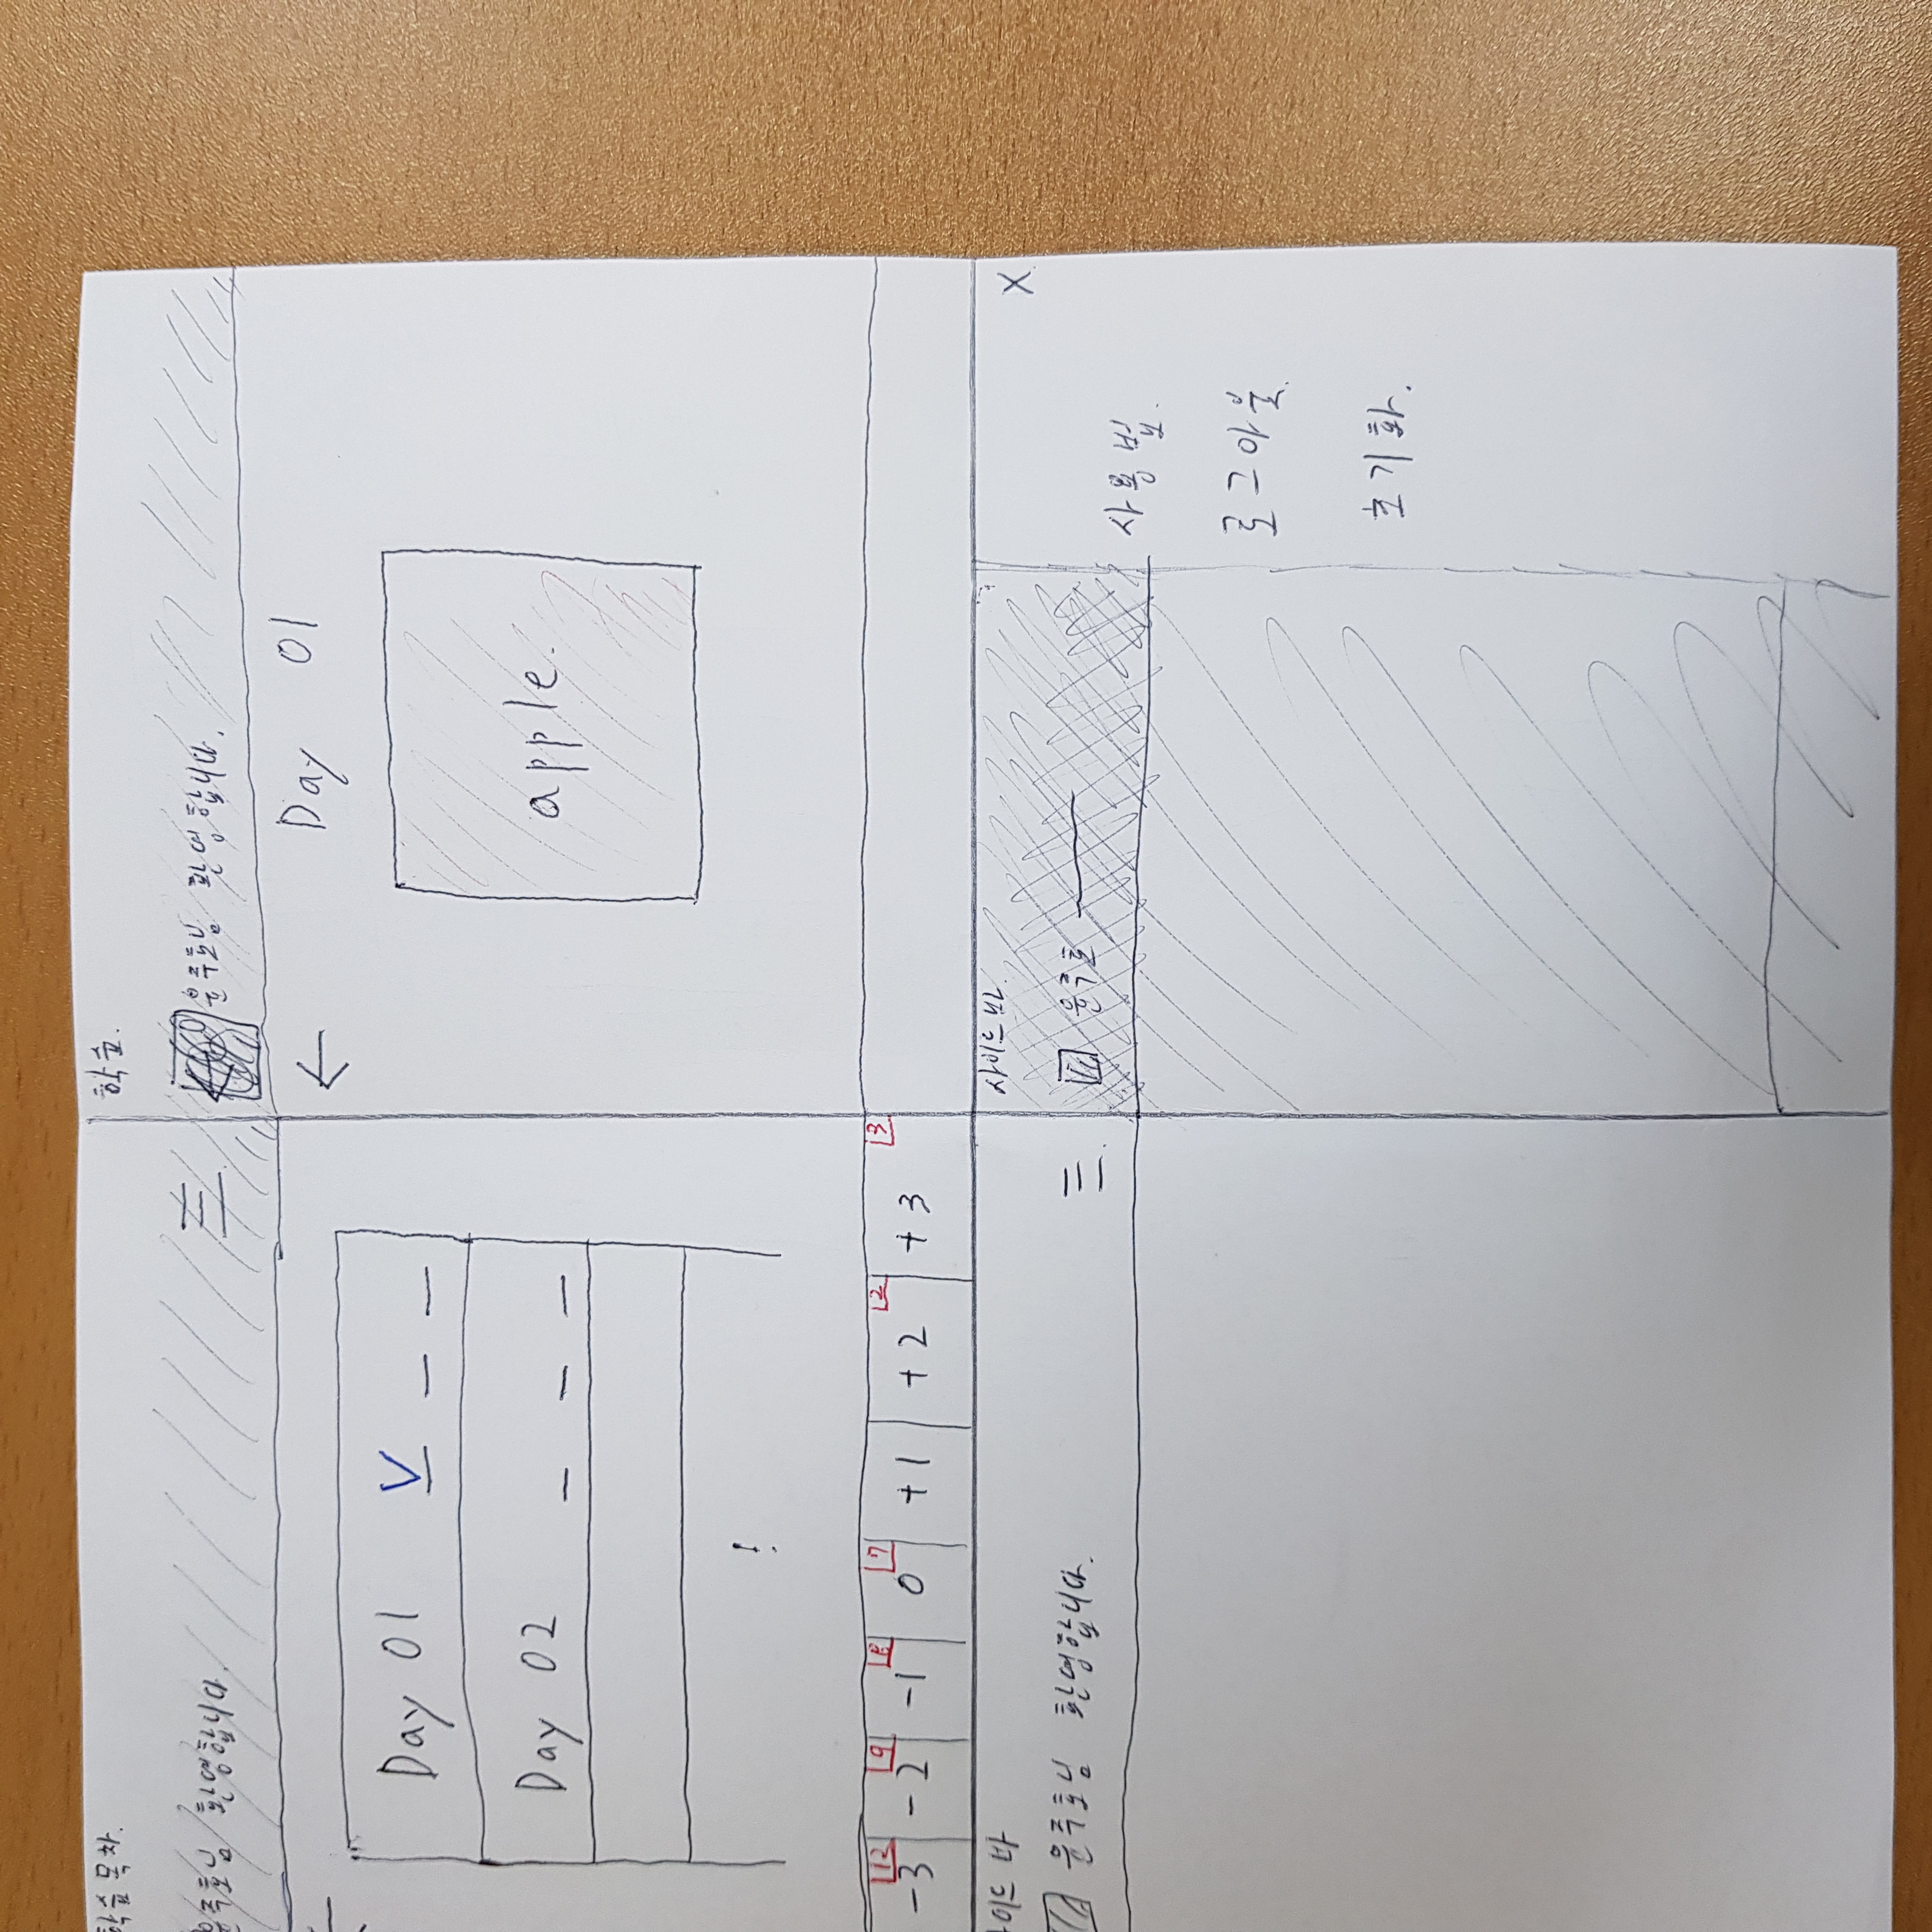 학습목차.
윤주호님 환영합니다.
Day 01 V _ _
Day 02 _ _ _
-3 -2 -1 0 +1 +2 +3
12 9 8 7 2 3
학습.
윤주호님 환영합니다.
Day 01
apple.
사이드 바
윤주호님 환영합니다.
사이드 바.
윤주호
X
사용법.
로그아웃.
초기화.